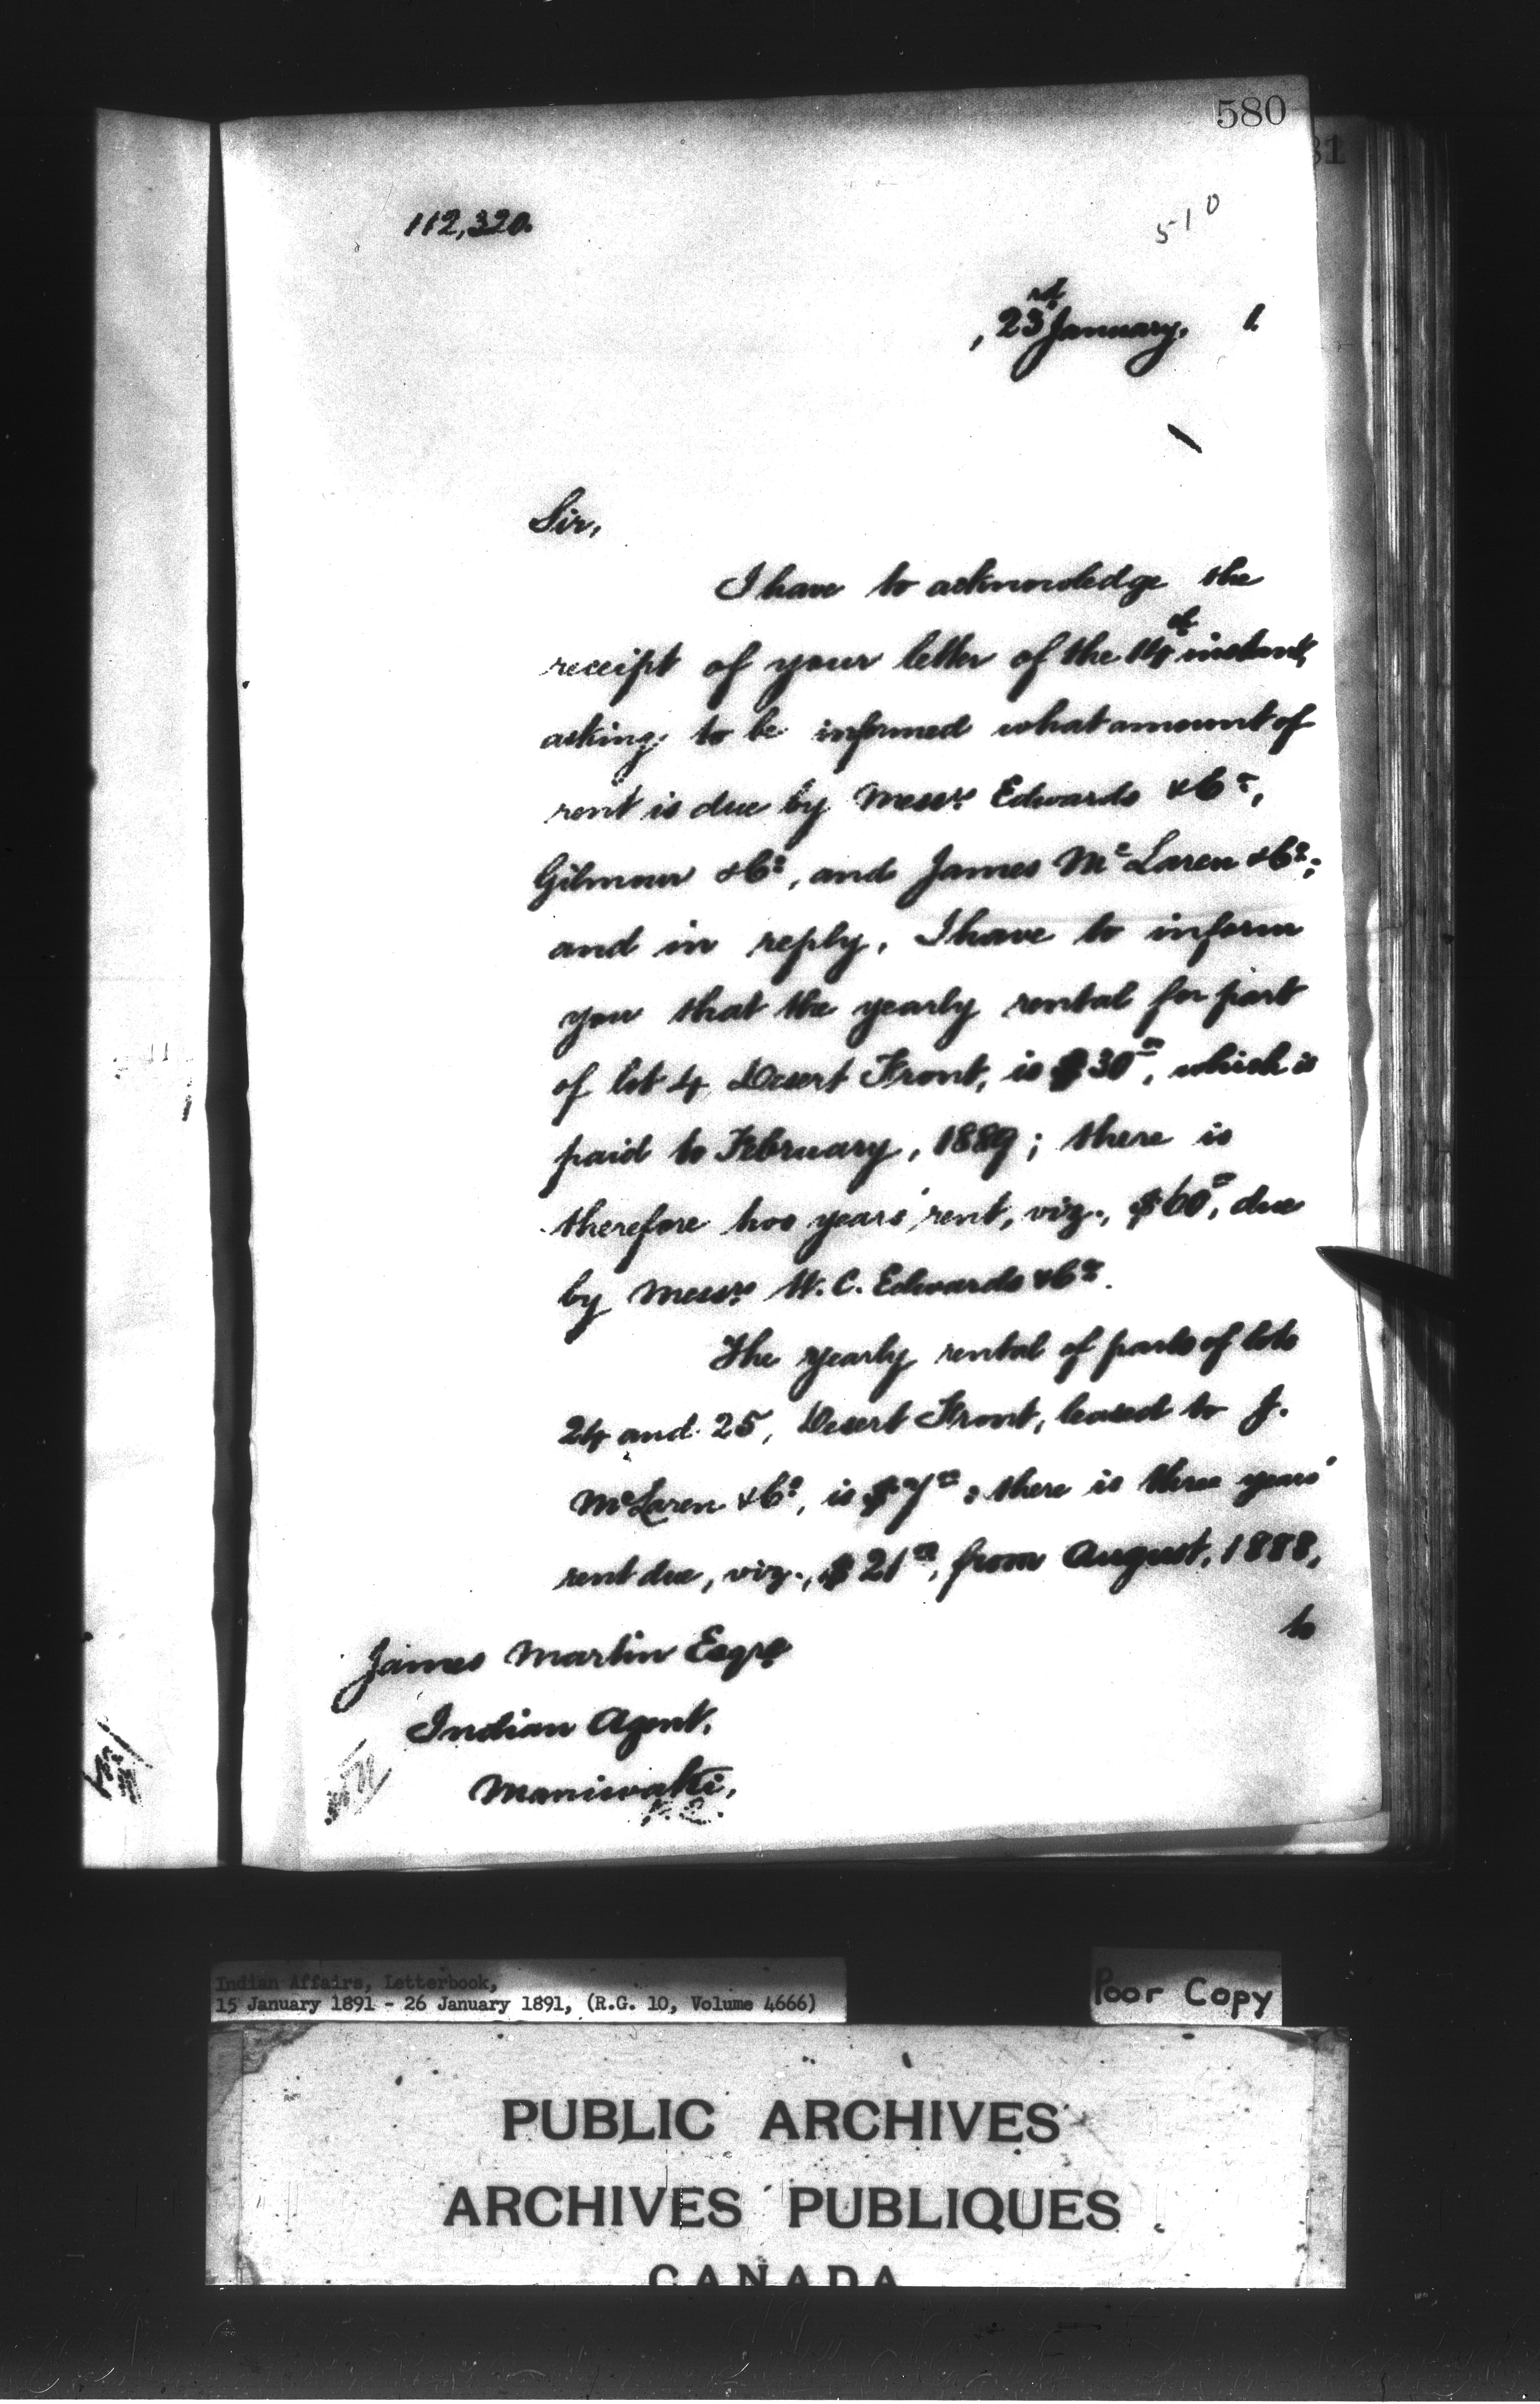 580
81
112,320.
510
, 23rd January, 1.
Sir,
I have to acknowledge the
receipt of your letter of the 14th instant,
asking to be informed what amount of
rent is due by Messrs Edwards & Co,
Gilmour & Co, and James McLaren & Co;
and in reply, I have to inform
you that the yearly rental for part
of lot 4 Desert Front, is $30 00, which is
paid to February, 1889; there is
therefore two years' rent, viz., $60 00, due
by Messrs W. C. Edwards & Co.
The yearly rental of parts of lots
24 and 25, Desert Front, leased to J.
McLaren & Co, is $7 00; there is three years'
rent due, viz., $21 00, from August, 1888,
to
James Martin Esqre
Indian Agent,
Maniwaki,
P.Q.
Indian Affairs, Letterbook,
15 January 1891 - 26 January 1891, (R.G. 10, Volume 4666)
Poor Copy
PUBLIC ARCHIVES
ARCHIVES PUBLIQUES
CANADA